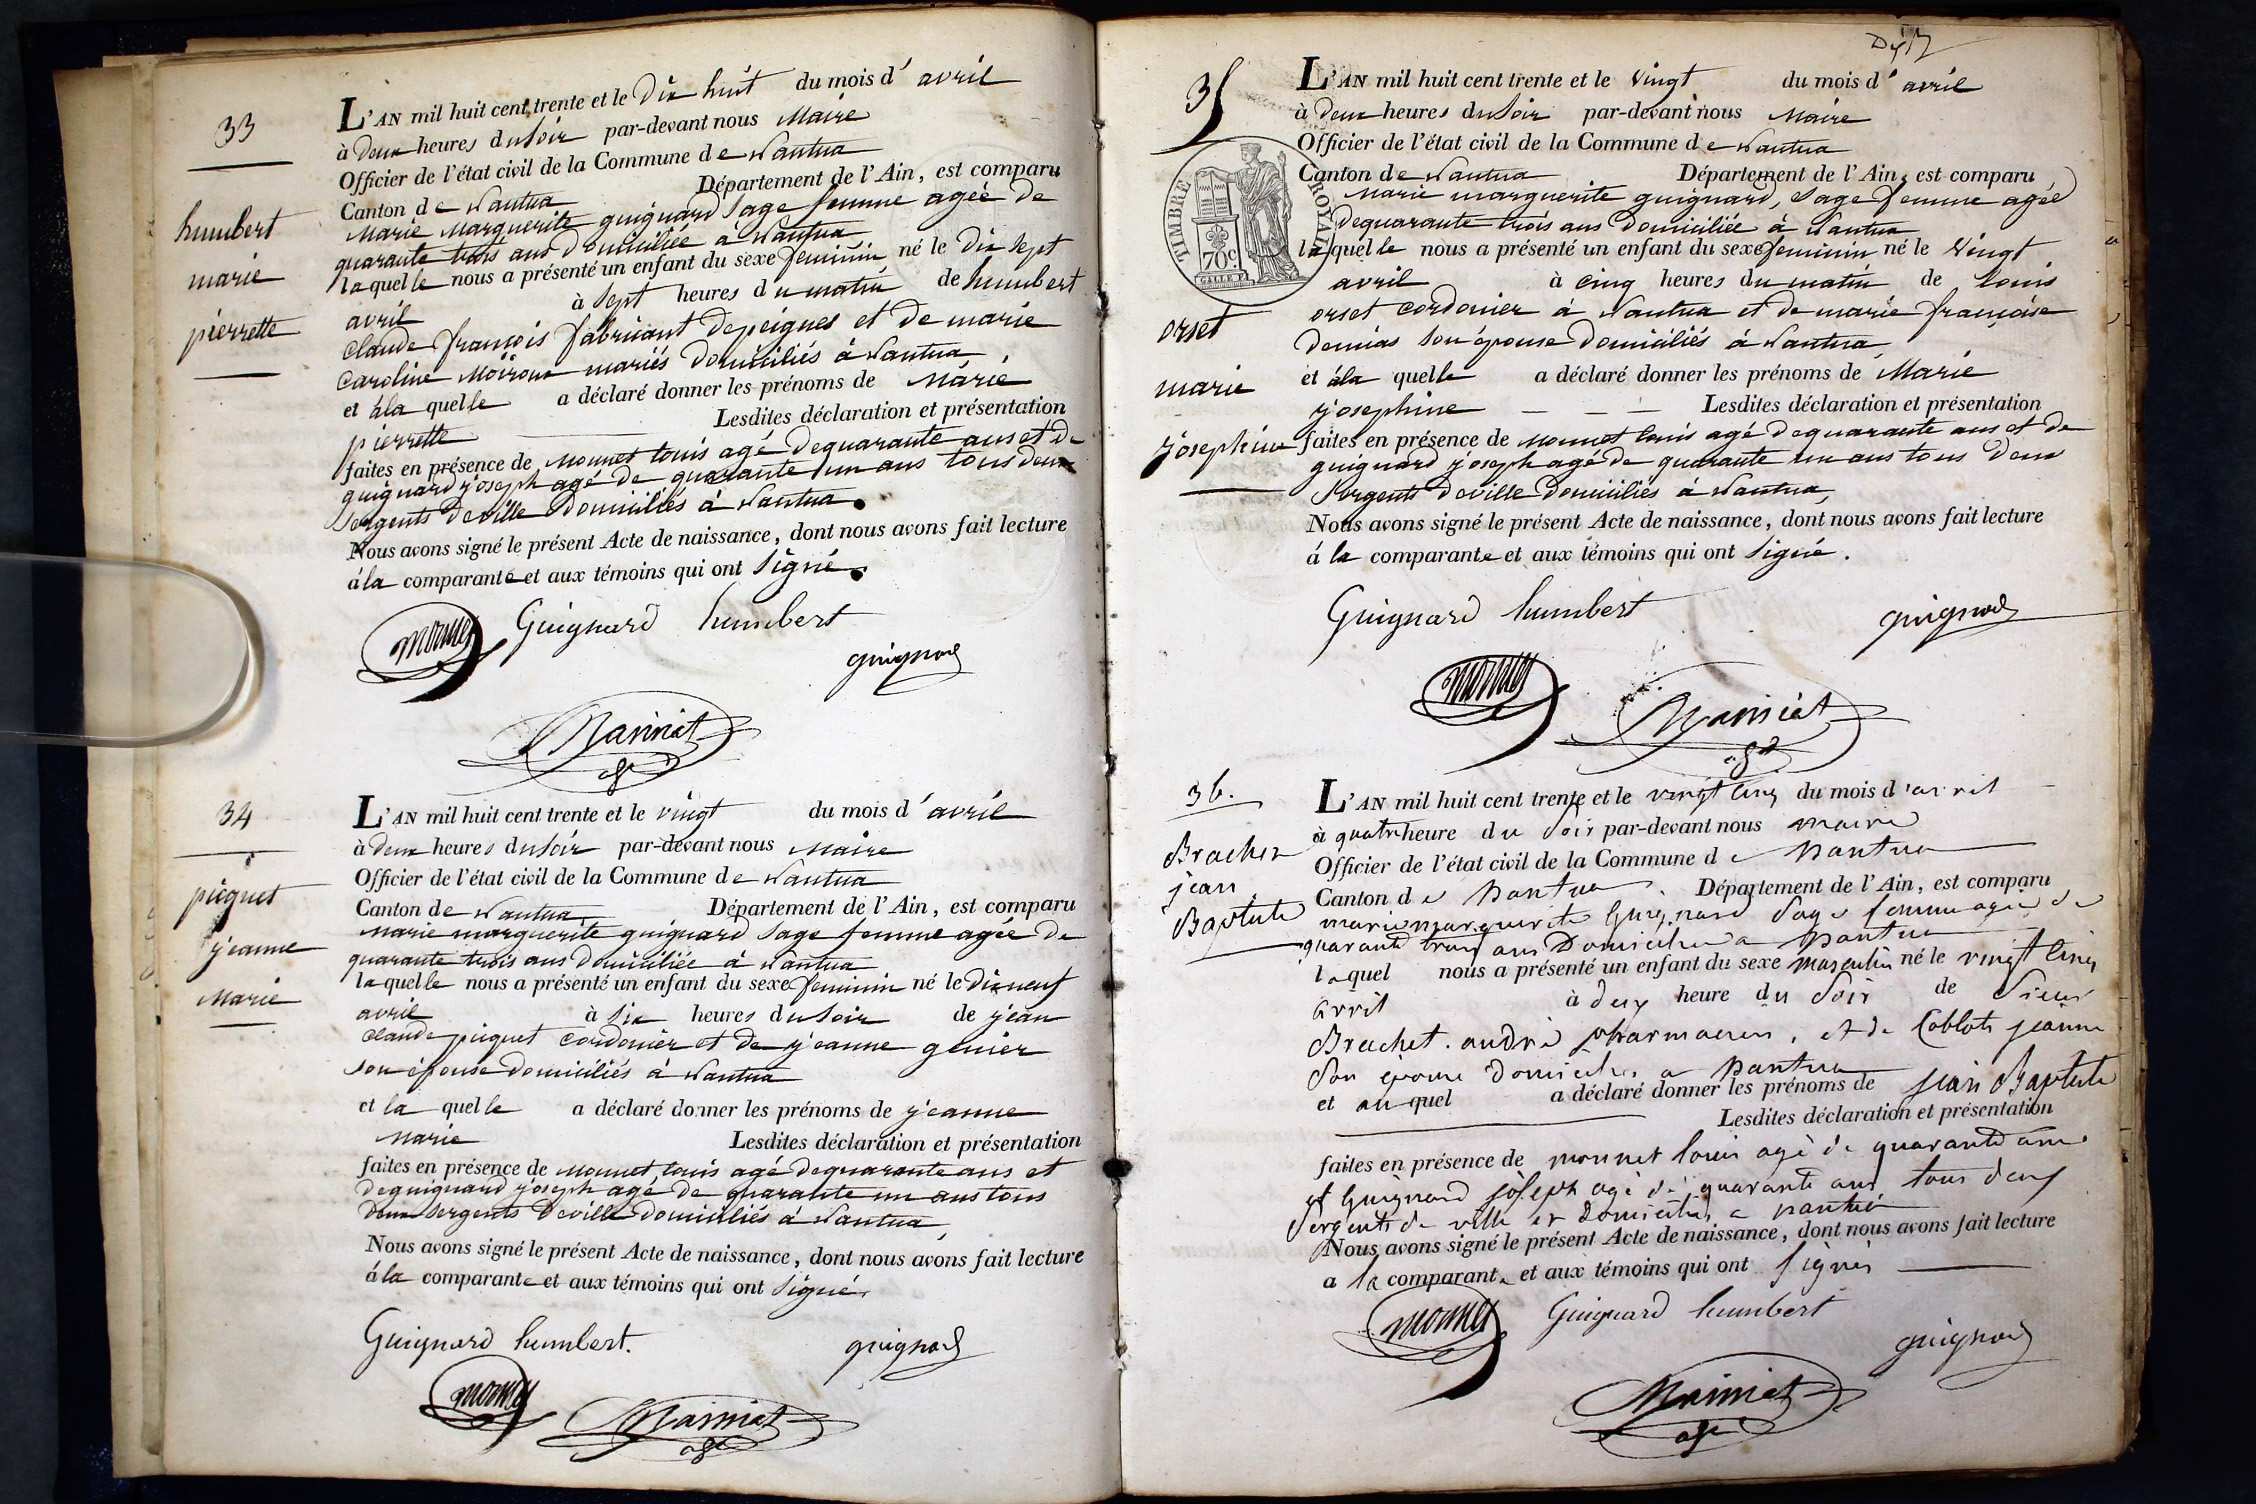 33
humbert
marie
pierrette
L'AN mil huit cent trente et le Dix huit du mois d'avril
à Deux heures du Soir par-devant nous Maire
Officier de l'état civil de la Commune de Nantua
Canton de Nantua Département de l'Ain, est comparu
Marie Marguerite guignard Sage femme agée de
quarante trois ans Domiciliée à Nantua
laquelle nous a présenté un enfant du sexe feminin né le Dix Sept
avril à Sept heures du matin de humbert
claude françois fabricant De peignes et De marie
Caroline Moiroux mariés Domiciliés à Nantua
et à la quelle a déclaré donner les prénoms de Marie
pierrette Lesdites déclaration et présentation
faites en présence de Monnet Louis agé De quarante ans et De
guignard joseph agé De quarante un ans tous deux
Sergents De ville Domiciliés à Nantua.
Nous avons signé le présent Acte de naissance, dont nous avons fait lecture
à la comparante et aux témoins qui ont Signé.
monnet Guignard humbert
guignard
Mainiat
34
picquet
jeanne
Marie
L'AN mil huit cent trente et le vingt du mois d'avril
à Deux heures du Soir par-devant nous Maire
Officier de l'état civil de la Commune de Nantua
Canton de Nantua Département de l'Ain, est comparu
Marie marguerite guignard Sage femme agée De
quarante trois ans Domiciliée à Nantua
laquelle nous a présenté un enfant du sexe feminin né le Dix neuf
avril à Six heures du Soir de jean
claude picquet cordonier et De jeanne genier
son épouse domiciliés à Nantua
et la quelle a déclaré donner les prénoms de jeanne
Marie Lesdites déclaration et présentation
faites en présence de Monnet Louis agé De quarante ans et
De guignard joseph agé De quarante un ans tous
Deux Sergents De ville Domiciliés à Nantua
Nous avons signé le présent Acte de naissance, dont nous avons fait lecture
à la comparante et aux témoins qui ont Signé.
Guignard humbert. guignard
monnet Mainiat
35
TIMBRE ROYAL
70c
orset
marie
josephine
L'AN mil huit cent trente et le Vingt du mois d'avril
à Deux heures du Soir par-devant nous Maire
Officier de l'état civil de la Commune de Nantua
Canton de Nantua Département de l'Ain, est comparu
Marie marguerite guignard, Sage femme agée
De quarante trois ans Domiciliée à Nantua
laquelle nous a présenté un enfant du sexe feminin né le Vingt
avril à cinq heures du matin de Louis
orset cordonier à Nantua et de marie françoise
Son épouse Domiciliés à Nantua
et à la quelle a déclaré donner les prénoms de Marie
josephine — — — Lesdites déclaration et présentation
faites en présence de Monnet Louis agé De quarante ans et De
guignard joseph agé De quarante un ans tous Deux
Sergents De ville Domiciliés à Nantua,
Nous avons signé le présent Acte de naissance, dont nous avons fait lecture
à la comparante et aux témoins qui ont Signé.
Guignard humbert guignard
monnet Mainiat
36.
Brachet
jean
Baptiste
L'AN mil huit cent trente et le vingt cinq du mois d'avril
à quatre heure du Soir par-devant nous maire
Officier de l'état civil de la Commune de Nantua
Canton de Nantua. Département de l'Ain, est comparu
marie marguerite Guignard Sage femme agée de
quarante trois ans Domiciliée a Nantua
laquel nous a présenté un enfant du sexe masculin né le vingt cinq
avril à deux heure du Soir de Sieur
Brachet. andré pharmacien, et de jeanne
Son épouse Domiciliés a Nantua
et au quel a déclaré donner les prénoms de jean Baptiste
Lesdites déclaration et présentation
faites en présence de monnet louis agé de quarante ans
et Guignard joseph agé de quarante ans tous deux
Sergents de ville et Domiciliés a nantua
Nous avons signé le présent Acte de naissance, dont nous avons fait lecture
a la comparante et aux témoins qui ont Signés
monnet Guignard humbert
guignard
Mainiat